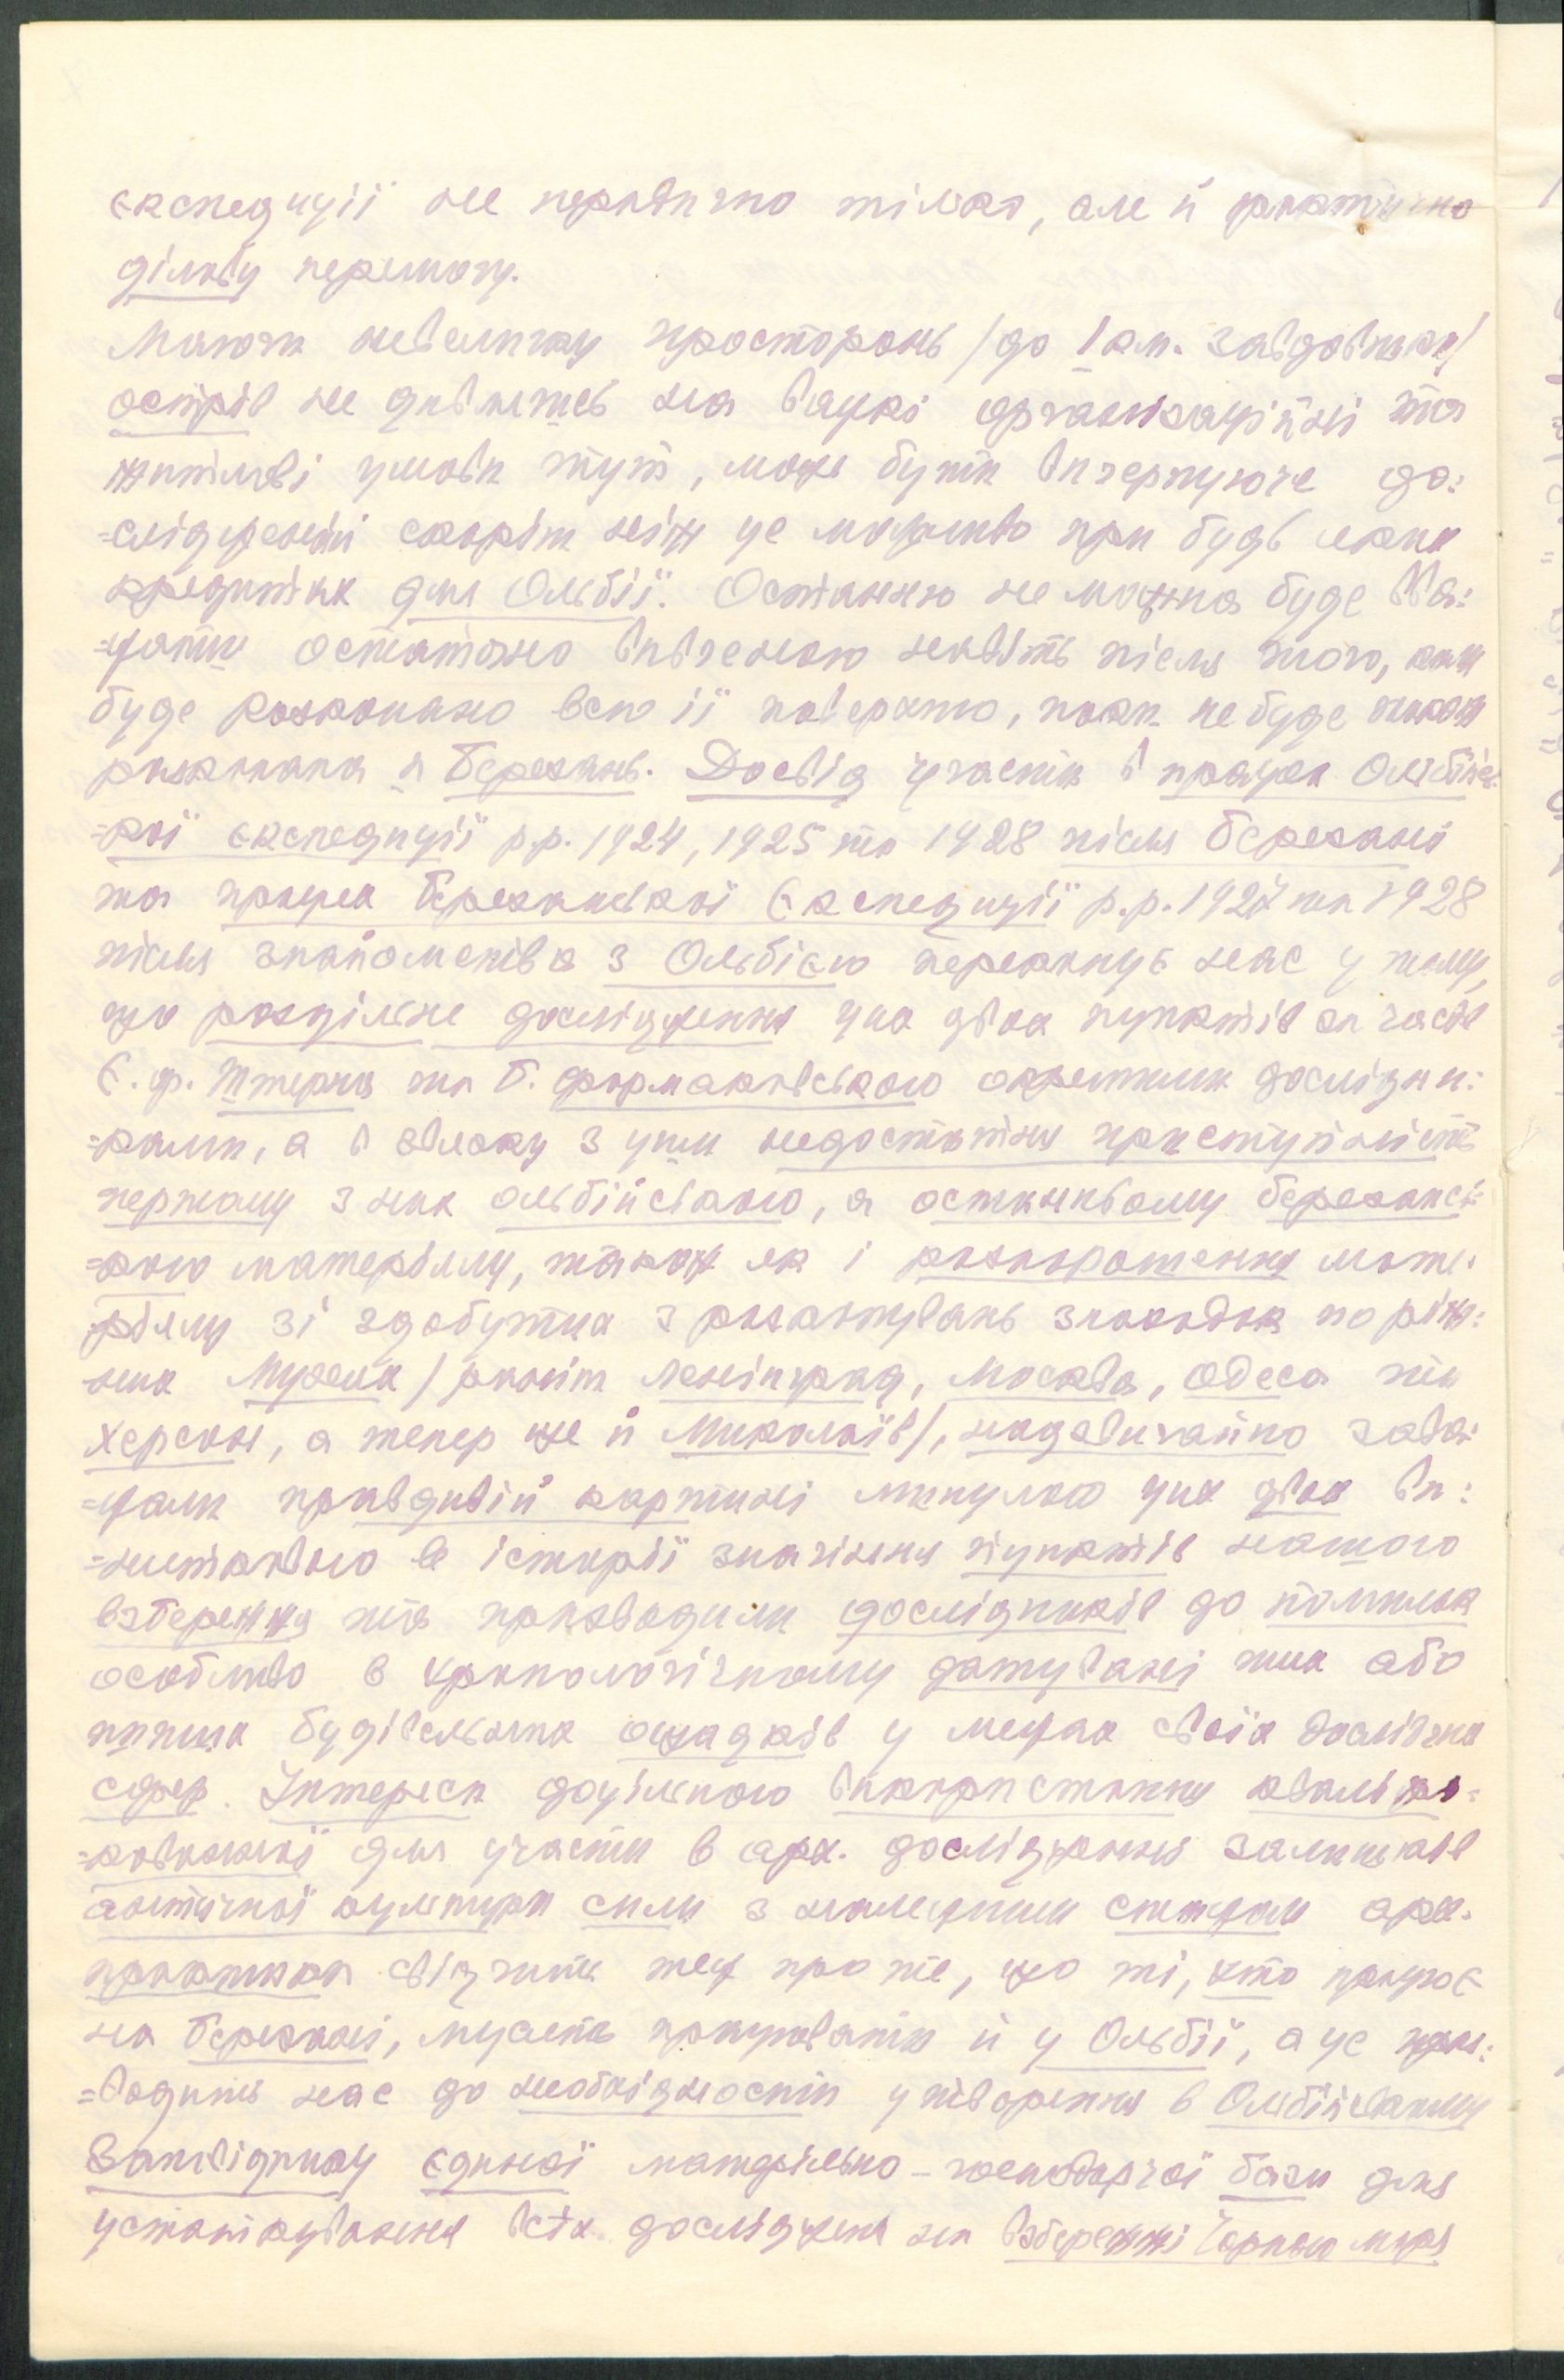 експедиції не первітно тілько, але й фактично
ділову перемогу.
Маючи невеличку просторонь /до 1 км. завдовжки/
острів не дивлячись на важкі організаційні та
житлові умови тут, може бути вичерпуюче до:
=сліджений скоріш ніж це можливо при будь яких
кредитах для Ольбії. Останню не можна буде вва:
=жати остаточно вивченою навіть після того, коли
буде розкопано всю її поверхню, поки не буде також
розкопана й Березань. Досвід участи в працях Ольбійсь
=кої експедиції р.р. 1924, 1925 та 1928 після Березані
та працях Березанської Експедиції р.р. 1927 та 1928
після знайомства з Ольбією переконує нас у тому,
що роздільне дослідження цих двох пунктів за часів
Є. Ф. Штерна та Б. Фармаковського окремими дослідни:
=ками, а в звязку з цим недостатня приступність
першому з них ольбійського, а останньому березансь
=кого матеріялу, також як і розпорошення мате:
ріялу зі здобутих з розкопувань знахідок по ріж:
них Музеях /раніш Ленінград, Москва, Одеса та
Херсон, а тепер ще й Миколаїв/, надзвичайно зава:
=жали правдивій картині минулого цих двох ви:
=няткового в історії значіння пунктів нашого
взбережжя та призводили дослідників до помилок
особливо в хронологічному датуванні тих або
инших будівельних осадків у межах своїх дослідчих
сфер. Інтереси доцільного використання кваліфі=
=кованної для участи в арх. дослідженні залишків
античної культури сили з належним стажом арх.
практики свідчить теж про те, що ті, хто працює
на Березані, мусять працювати й у Ольбії, а це при:
=водить нас до необхідности утворення в Ольбійському
Заповіднику єдиної матеріяльно-господарчої бази для
устаткування всіх досліджень на взбережжі Чорного моря